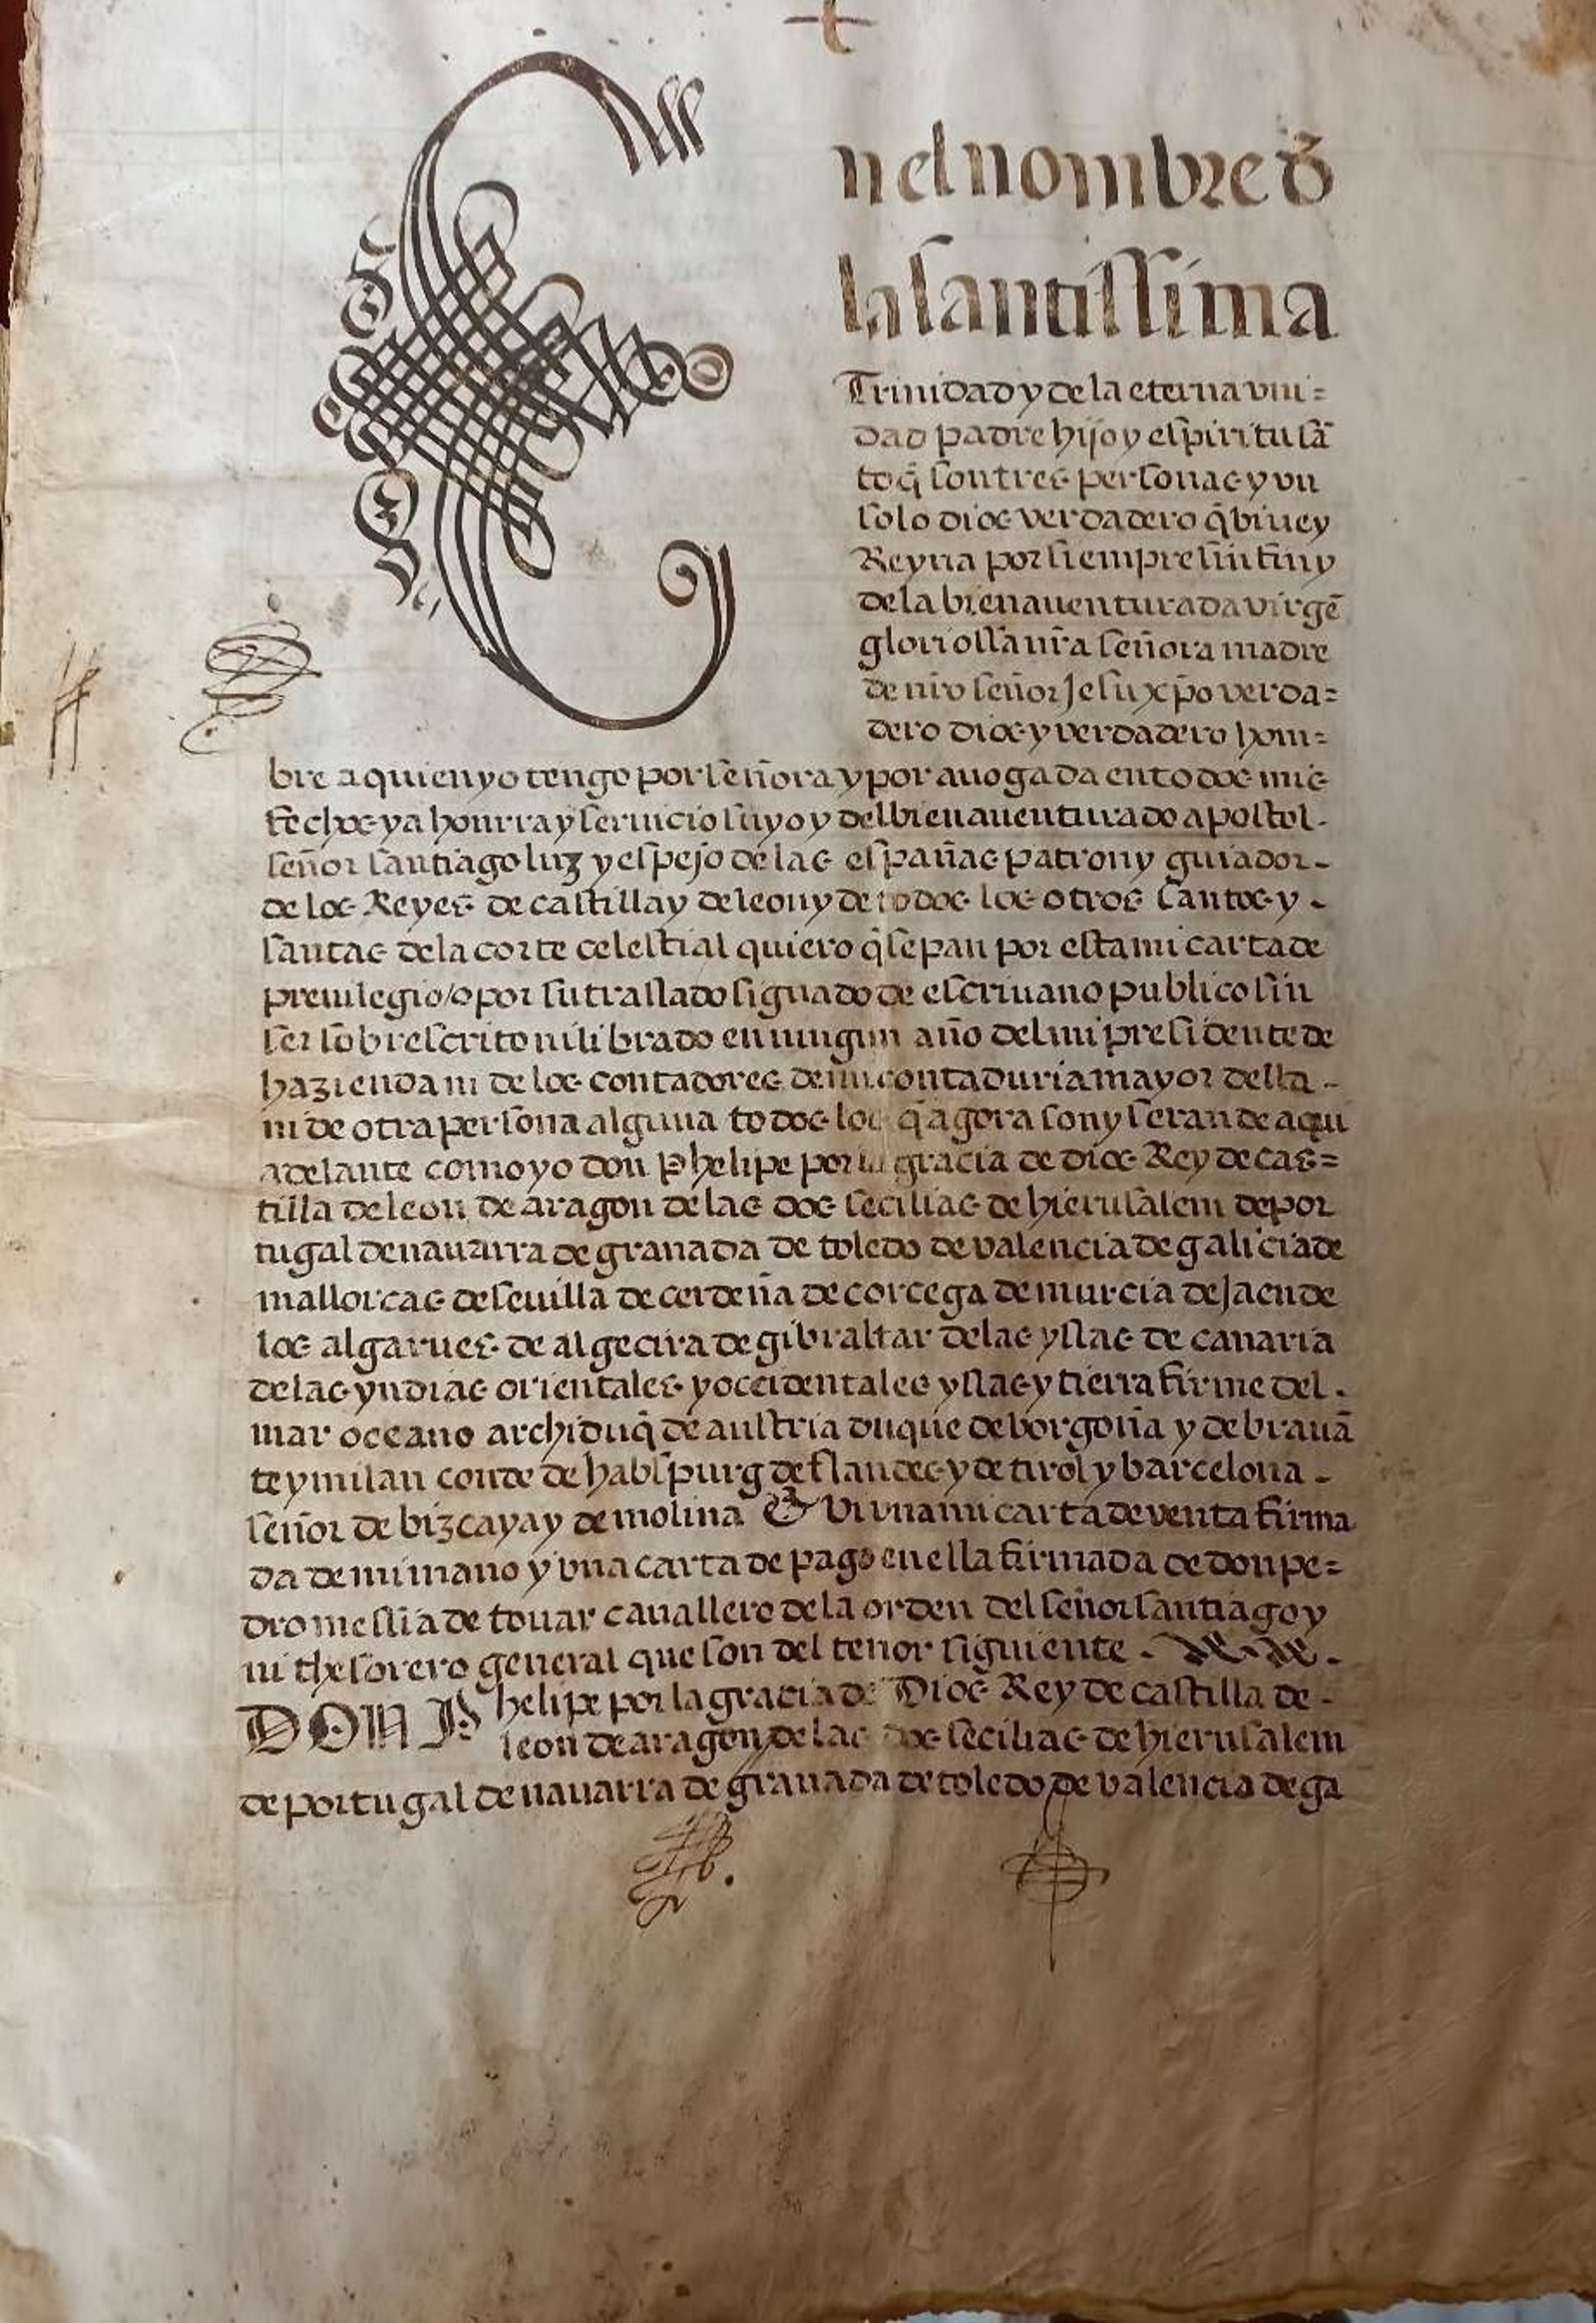 En el nombre d
la santissima
Trinidad y de la eterna vni=
dad padre hijo y espiritu sã
to q̃ son tres personas y vn
solo dios verdadero q̃ biue y
Reyna por siempre sin fin y
de la bienauenturada virgẽ
gloriossa nr̃a señora madre
de nr̃o señor Jesu xp̃o verda=
dero dios y verdadero hom=
bre a quien yo tengo por señora y por auogada en todos mis
fechos y a honrra y seruicio suyo y del bienauenturado apostol.
señor santiago luz y espejo de las españas patron y guiador.
de los Reyes de castilla y de leon y de todos los otros santos y.
santas de la corte celestial quiero q̃ sepan por esta mi carta de
preuilegio/o por su traslado signado de escriuano publico sin
ser sobrescrito ni librado en ningun año del mi presidente de
hazienda ni de los contadores de mi contaduria mayor della.
ni de otra persona alguna todos los q̃ agora son y seran de aqui
adelante como yo don Phelipe por la gracia de dios Rey de cas=
tilla de leon de aragon de las dos secilias de hierusalem de por
tugal de nauarra de granada de toledo de valencia de galicia de
mallorcas de seuilla de cerdeña de corcega de murcia de Jaen de
los algarues de algecira de gibraltar de las yslas de canaria
de las yndias orientales y occidentales yslas y tierra firme del.
mar oceano archiduq̃ de austria duque de borgoña y de brauã
te y milan conde de habspurg de flandes y de tirol y barcelona.
señor de bizcaya y de molina &ª Vi vna mi carta de venta firma
da de mi mano y vna carta de pago en ella firmada de don pe=
dro messia de touar cauallero de la orden del señor santiago y
mi thesorero general que son del tenor siguiente.
DON Phelipe por la gracia de Dios Rey de castilla de.
leon de aragon de las dos secilias de hierusalem
de portugal de nauarra de granada de toledo de valencia de ga